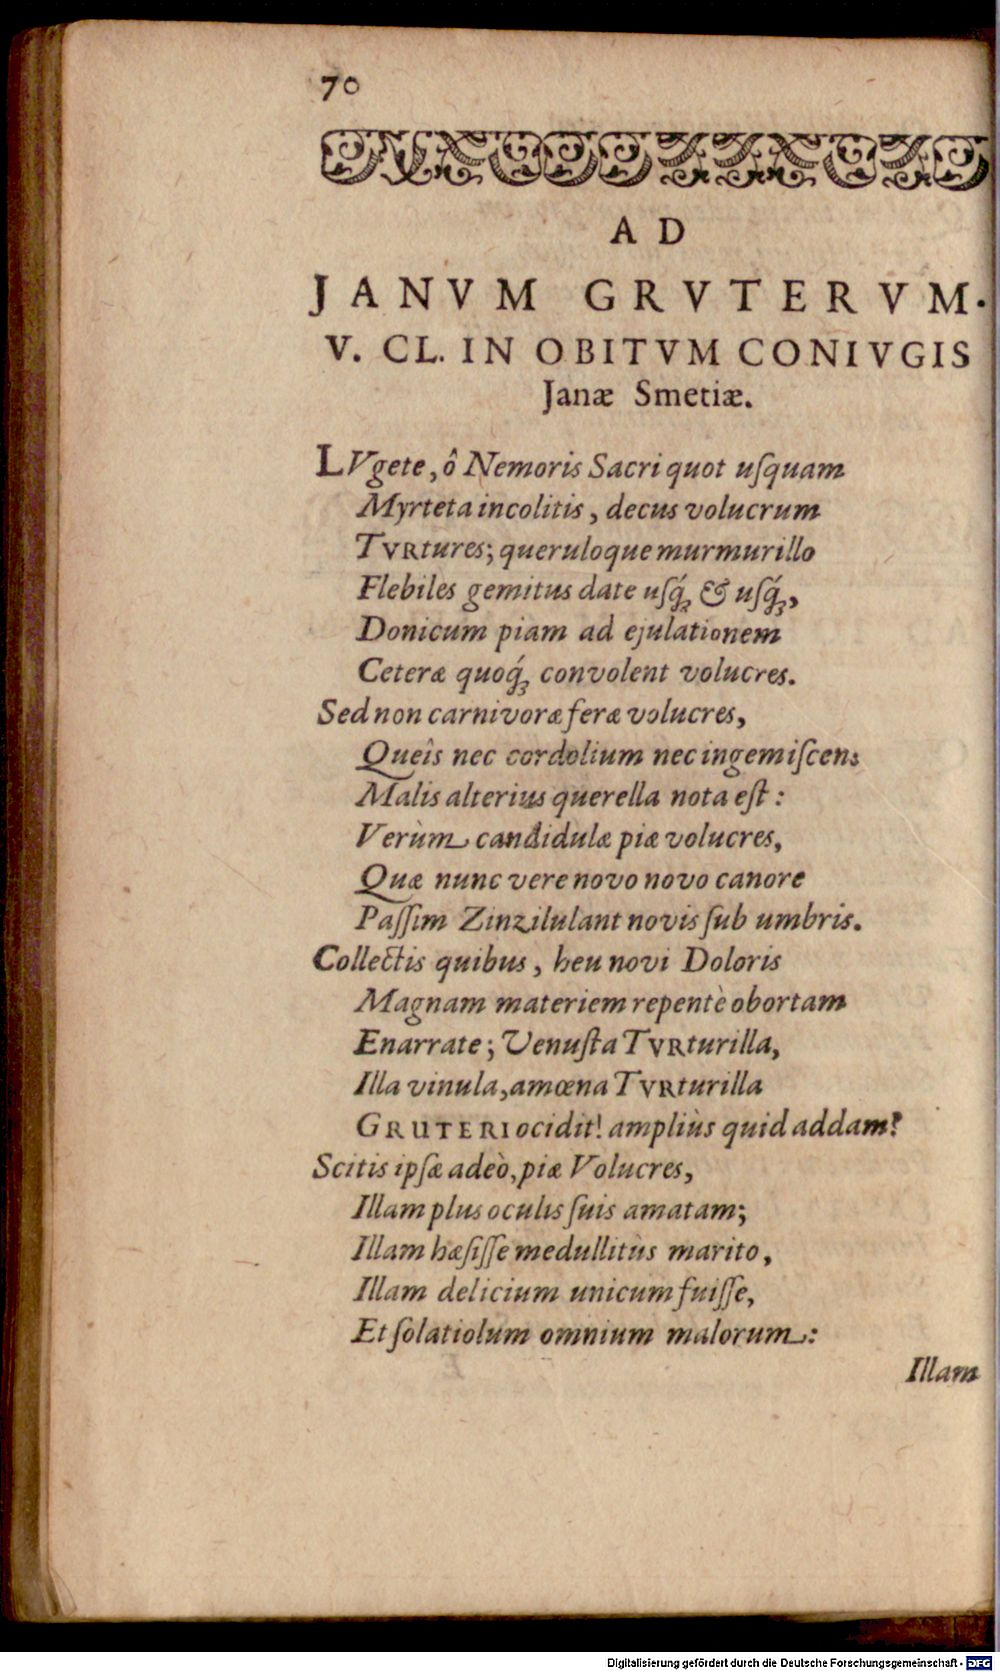 70
AD
JANVM GRVTERVM.
V. CL. IN OBITVM CONIVGIS
Janæ Smetiæ.
LVgete, ô Nemoris Sacri quot uſquam
Myrteta incolitis, decus volucrum
TVRtures; queruloque murmurillo
Flebiles gemitus date uſq́ꝫ & uſq́ꝫ,
Donicum piam ad ejulationem
Ceteræ quoq́ꝫ convolent volucres.
Sed non carnivoræ feræ volucres,
Queîs nec cordolium nec ingemiſcens
Malis alterius querella nota eſt:
Verùm candidulæ piæ volucres,
Quæ nunc vere novo novo canore
Paſſim Zinzilulant novis ſub umbris.
Collectis quibus, heu novi Doloris
Magnam materiem repentè obortam
Enarrate; Venuſta TVRturilla,
Illa vinula, amœna TVRturilla
GRUTERI ocidit! ampliùs quid addam?
Scitis ipſæ adeò, piæ Volucres,
Illam plus oculis ſuis amatam;
Illam hæſiſſe medullitùs marito,
Illam delicium unicum fuiſſe,
Et ſolatiolum omnium malorum:
Illam
Digitalisierung gefördert durch die Deutsche Forschungsgemeinschaft - DFG